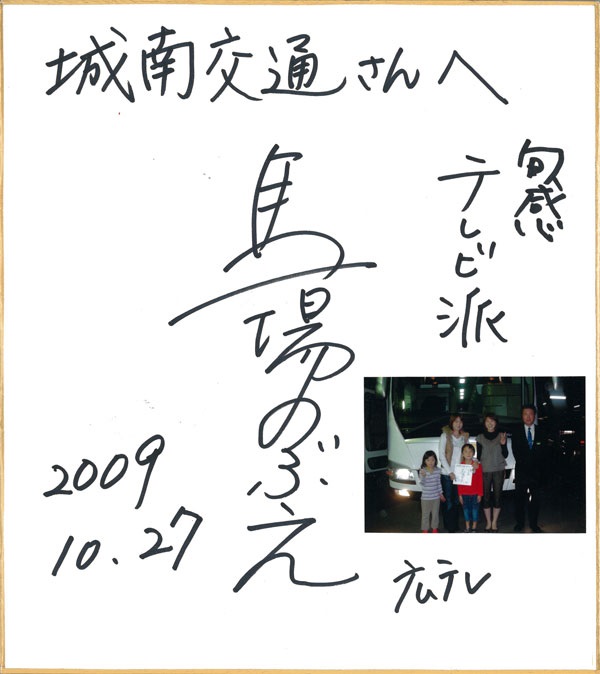 城南交通さんへ
旬感
テレビ派
馬場のぶえ
2009
10.27
広テレ